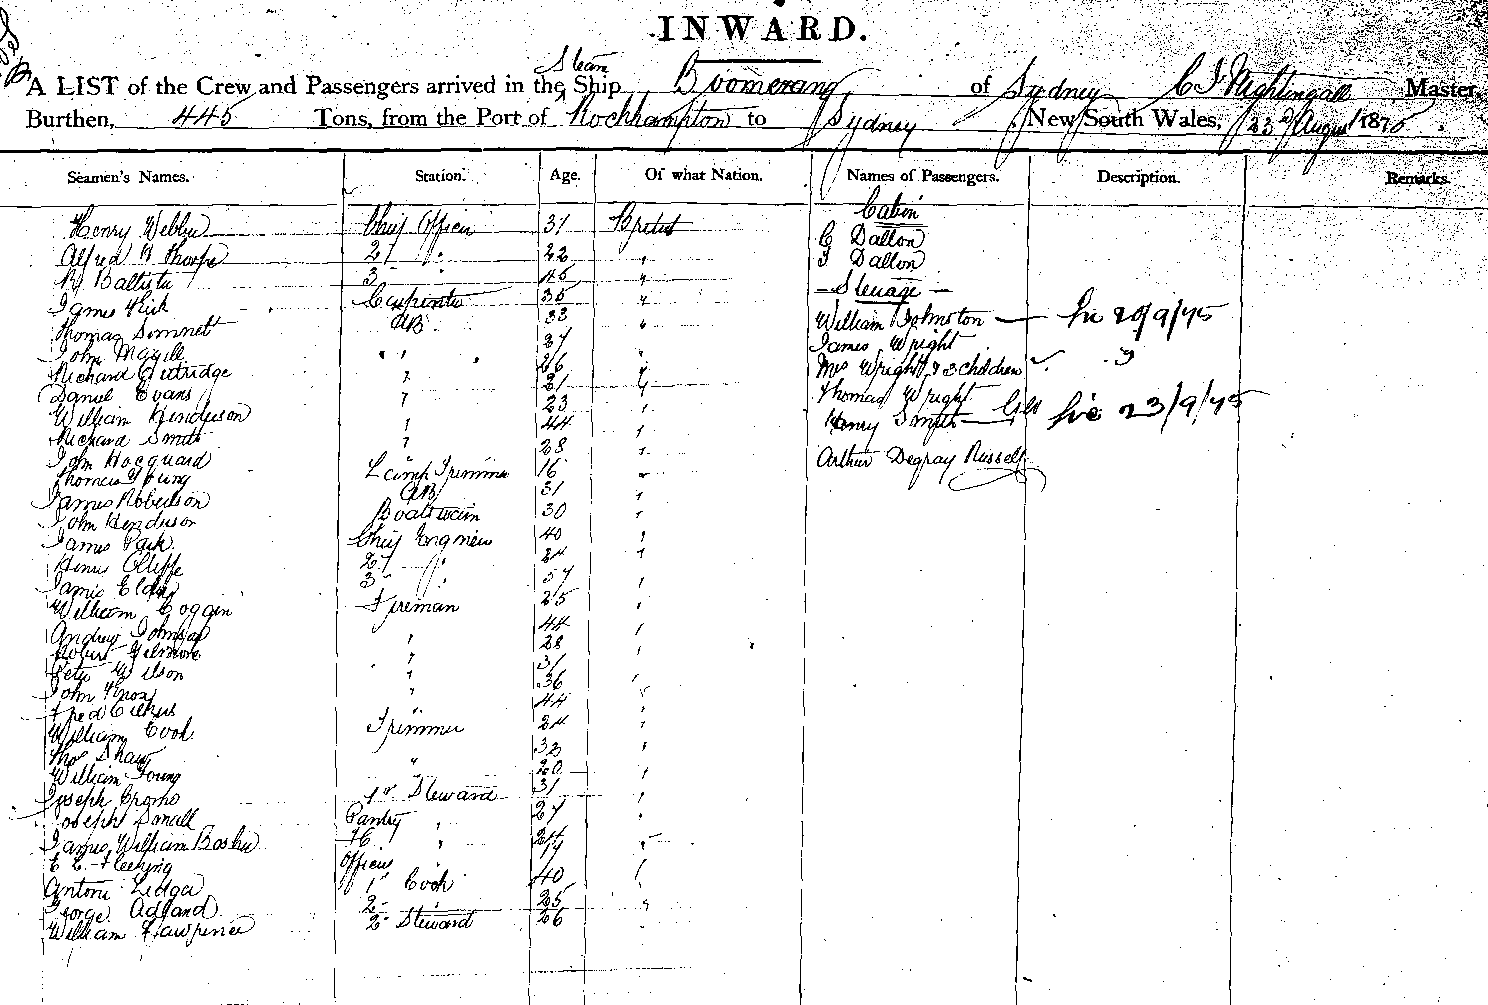 INWARD.
Steam
A LIST of the Crew and Passengers arrived in the Ship Boomerang of Sydney C J Nightingall Master,
Burthen, 445 Tons, from the Port of Rockhampton to Sydney New South Wales, 23 August 1875.
Seamen's Names. Station. Age. Of what Nation. Names of Passengers. Description. Remarks.
Cabin
Henry Webber Chief Officer 31 British C Dallon
Alfred W Thorpe 2 " 22 " J Dallon
Battista 3 " 45 "
James Kirk Carpenter 35 " — Steerage —
Thomas Simnett AB 33 " William Johnston — 20/9/75
John " " James Wright
Richard Gutridge " 26 " Mrs Wright & 3 children 3
Daniel Evans " 21 " Thomas Wright
William Henderson " 23 " Henry Smith — 23/9/75
Richard Smith " 44 "
John Hocquard " 28 " Arthur Degray Russell
Thomas Young Lamp Trimmer 16 "
James Robertson AB 31 "
John Henderson Boatswain 30 "
James Park Chief Engineer 40 "
Cliffe 2 " 24 "
James Elder 3 " "
William Coggin Fireman 25 "
Andrew Johnson " 44 "
Robert Gilmore " 28 "
Peter Wilson " 31 "
John Knox " 36 "
Fred " 44 "
William Cook Trimmer 24 "
Thos Shaw 32 "
William Young " 20 "
Joseph 1st Steward 31 "
Joseph Small Pantry " 27 "
James William " 24 "
Officers "
Antoni 1st Cook 40 "
George Adland 2 " 25 "
William 2 Steward 26